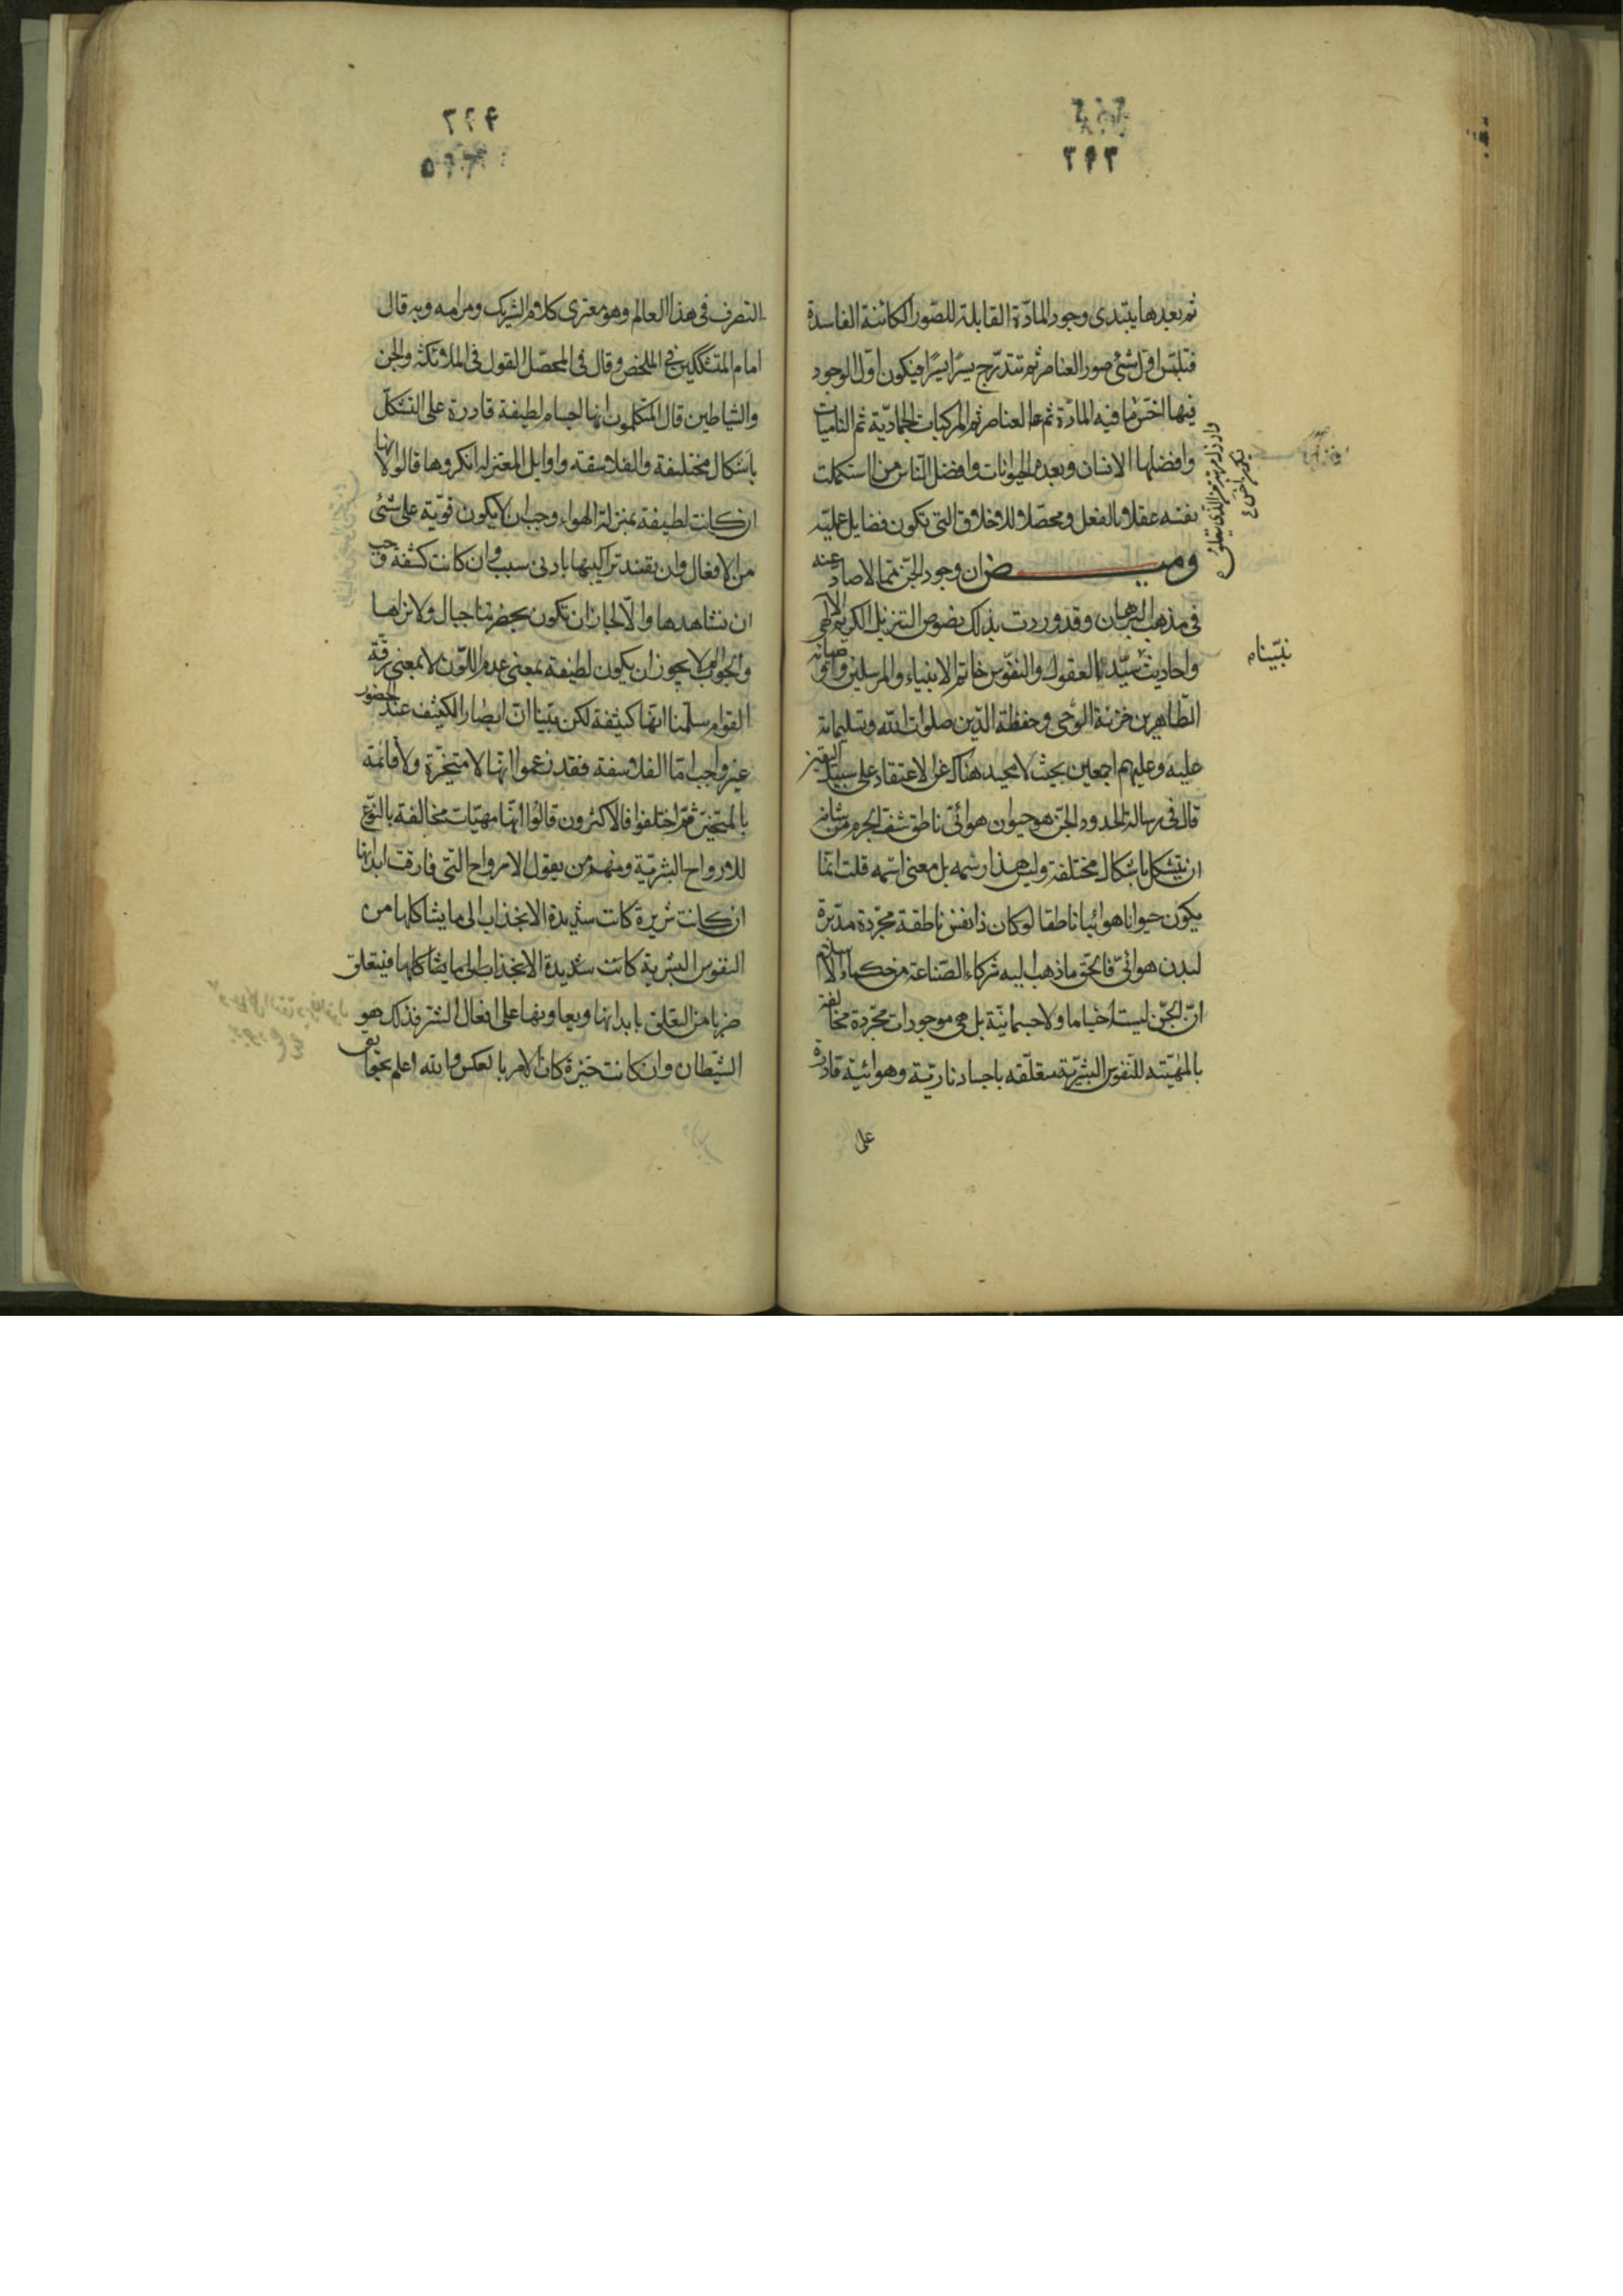 ٣٩٣
ثم بعدها يبتدى وجود المادّة القابلة للصّور الكائنة الفاسدة
فتلبّس اوّل شئ صور العناصر ثم تتدرّج يسرًا يسرًا فيكون اوّل الوجود
فيها اخسّ ما فيه المادّة ثم العناصر ثم المركبات الجماديّة ثم الناميات
وافضلها الانسان وبعده الحيوانات وافضل النّاس من استكملت
نفسه عقلا بالفعل ومحصّلا للاخلاق التى تكون فضايل عمليّه
وميـــض ان وجود الجنّ ممّا لا صادّ عنه
فى مذهب البرهان وقد وردت بذلك نصوص التنزيل الكريم الالهى
واحاديث سيّد العقول والنفوس خاتم الانبياء والمرسلين واوصيائه
الطاهرين خزنة الوحى وحفظة الدّين صلوات الله وتسليماته
عليه وعليهم اجمعين بحيث لا محيد هناك عن الاعتقاد على سبيل
قال فى رسالة الحدود الجنّ هو حيوان هوائىّ ناطق مشف الجرم من شانه
ان يتشكل باشكال مختلفة وليس هذا رسمه بل معنى اسمه قلت انّما
يكون حيوانا هوائيا ناطقا لو كان ذا نفس ناطقة مجّردة مدّبرة
لبدن هوائىّ فاتّحق ما ذهب اليه شركاء الصّناعة من حكماء الاسلام
انّ الجنّ ليست اجساما ولا جسمانيّة بل هى موجودات مجّردة مخالفة
بالمهيّته للنّفوس البشريّة متعلّقه باجساد ناريّة وهوائيّة قادرة
على
نبيّناه
التصرف فى هذا العالم وهو معتزى كلام الشريك ومرامه وبه قال
امام المتشككين فى الملخص وقال فى المحصّل القول فى الملائكة والجن
والشياطين قال المتكلمون انها اجسام لطيفة قادرة على التشكّل
باشكال مختلفة والفلاسفة واوايل المعتزله انكروها قالوا لانها
ان كانت لطيفة بمنزلة الهواء وجب ان لا يكون قوّية على شئ
من الافعال وان يفسد تراكيبها بادنى سبب وان كانت كثيفة وجب
ان نشاهدها والّا لجاز ان تكون بحضرتنا جبال ولا نراها
والجواب لم لا يجوز ان يكون لطيفة بمعنى عدم اللّون لا بمعنى رقّة
القوام سلّمنا انّها كثيفة لكن بيّنا انّ ابصار الكثيف عند الحضور
غير واجب امّا الفلاسفة فقد زعموا انّها لا متحيّزة ولا قائمة
بالمتحيّز ثمّ اختلفوا فالاكثرون قالوا انّها مهيّات مخالفة بالنّوع
للارواح البشريّة ومنهم من يقول الارواح التى فارقت ابدانها
ان كانت شريرة كانت شديدة الانجذاب الى ما يشاكلها من
النفوس البشرية كانت شديدة الانجذاب الى ما يشاكلها فيتعلق
ضربا من التعّلق بابدانها ويعاونها على افعال الشّر فذلك هو
الشّيطان وان كانت خيّرة كان الامر بالعكس والله اعلم بحقايق